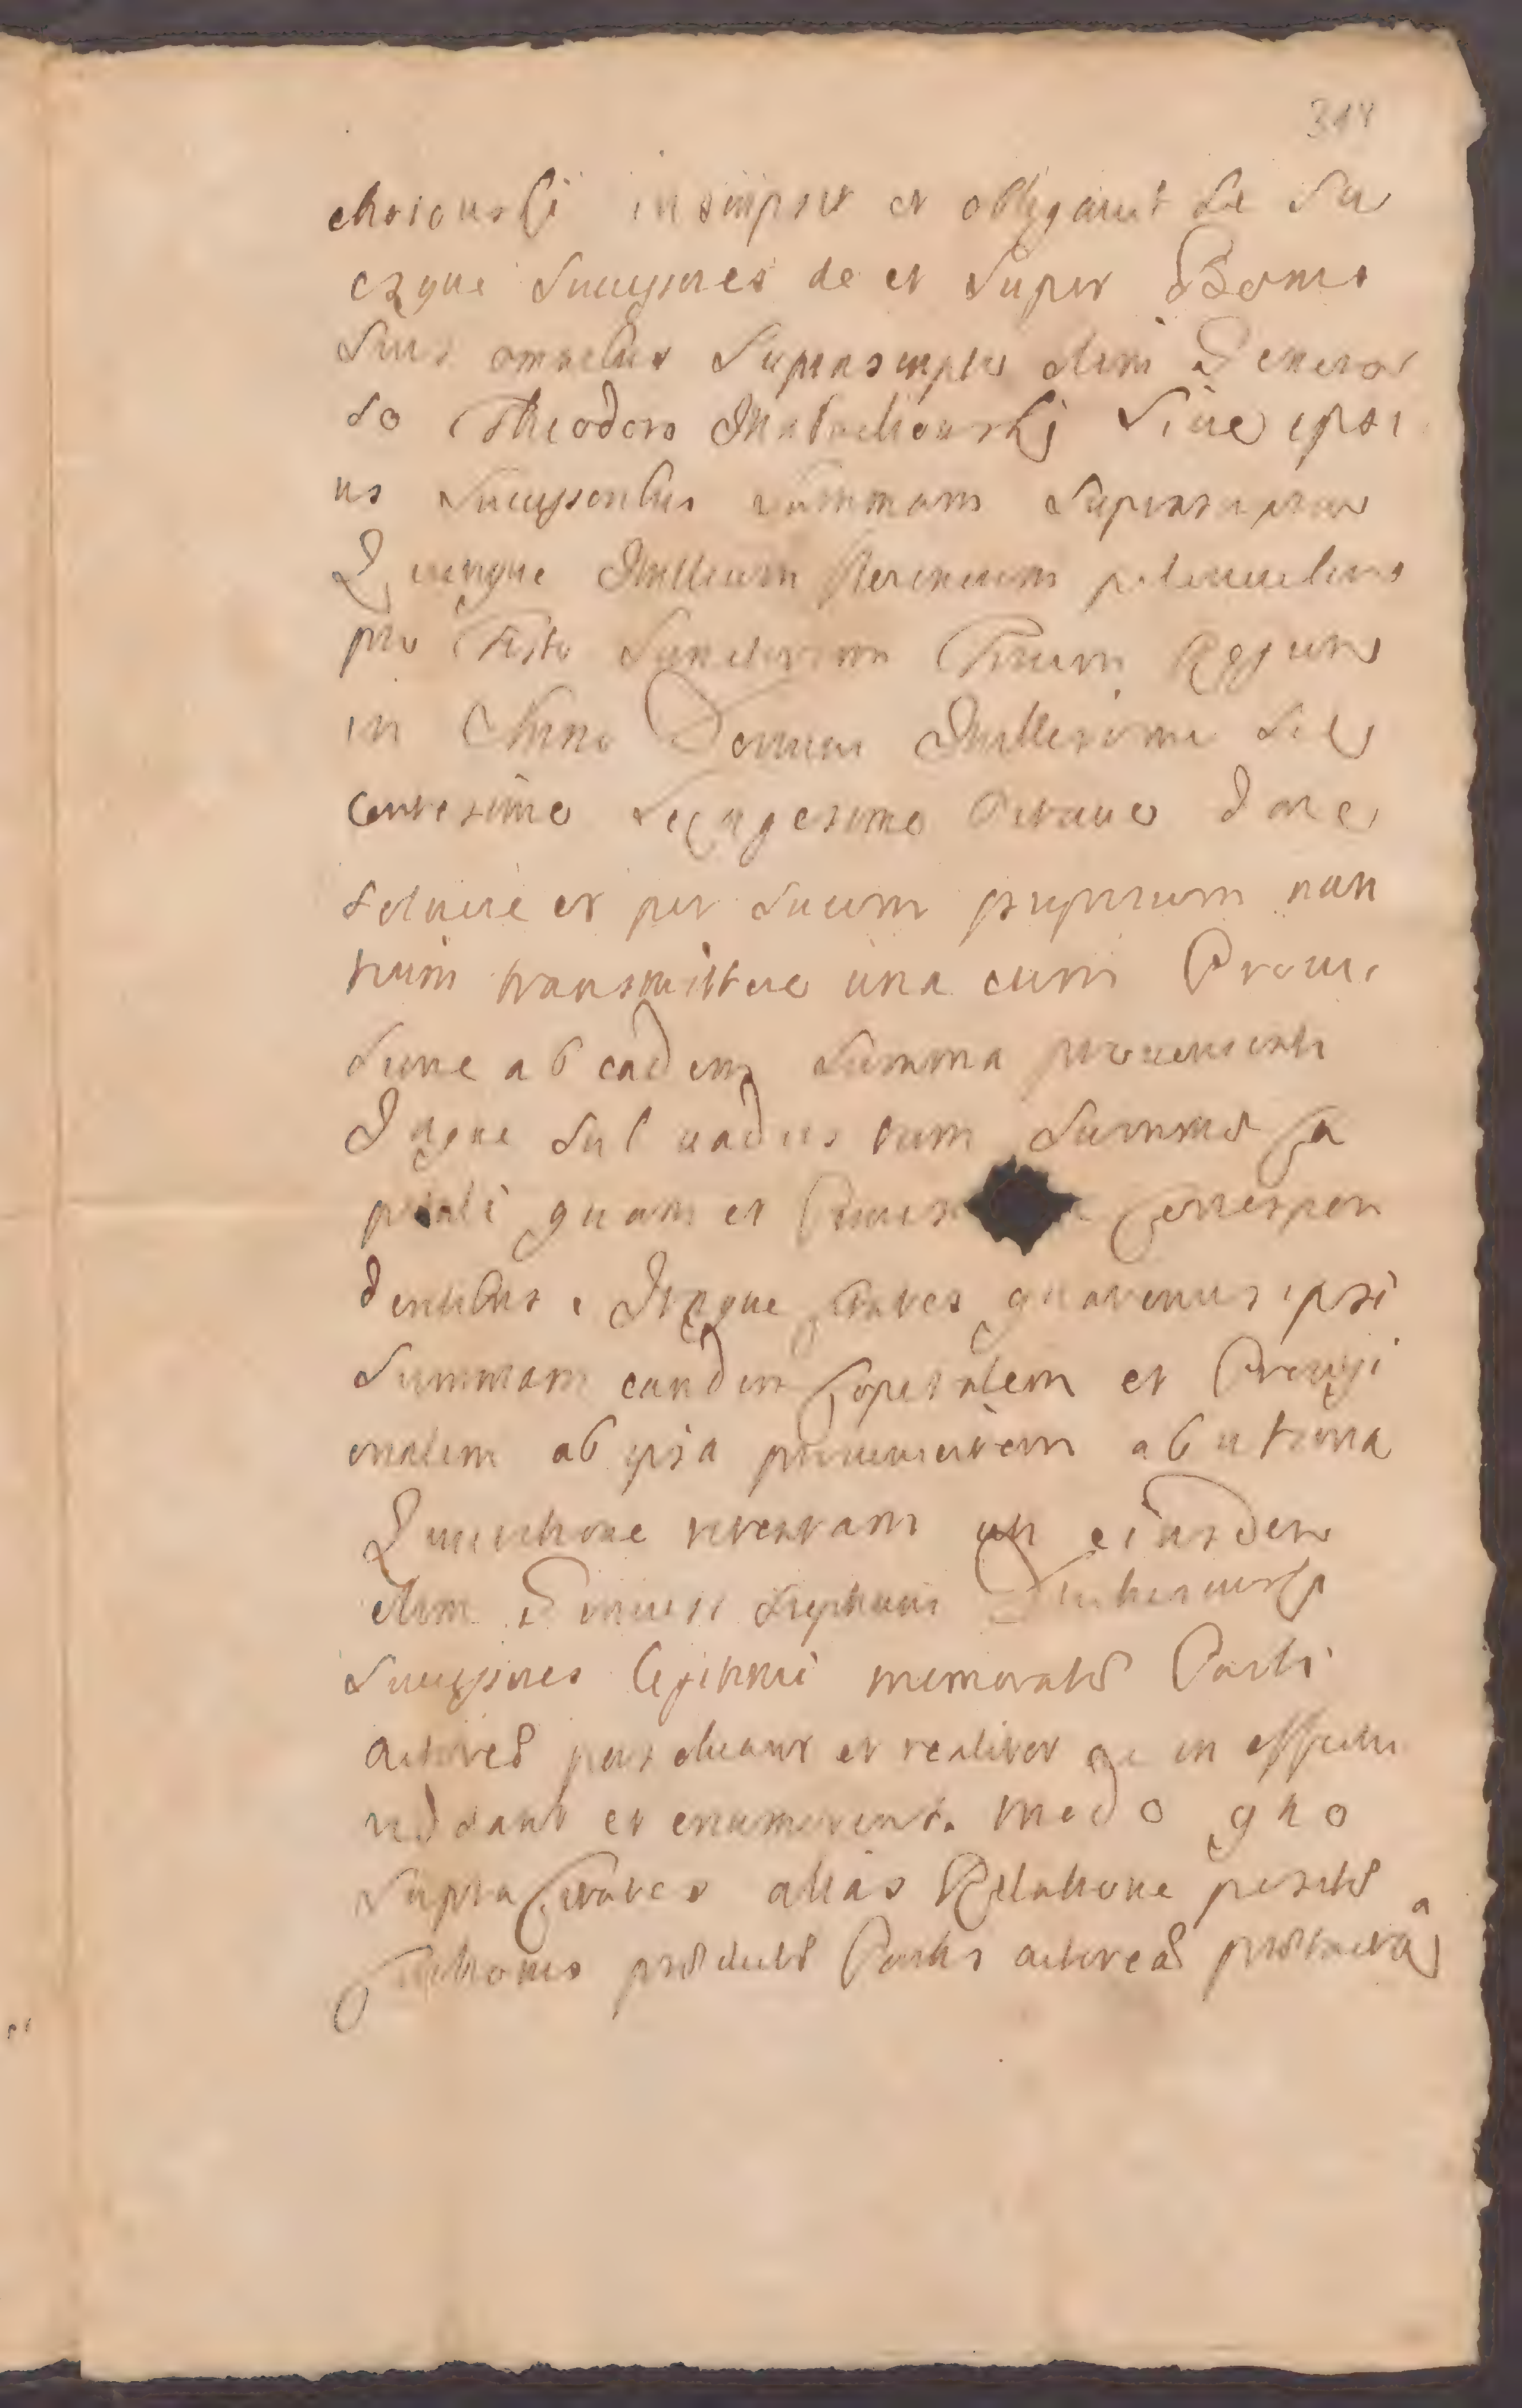 318
chotowski inscripsit et obligavit se su
osque successores de et super Bonis
suis omnibus suprascriptis olim Genero
so Theodoro Małachowski sive ipsi
us successoribus summam suprascriptam
Quinque Millium florenorum polonicalium
pro festo Sanctorum Trium Regum
in Anno Domini Millesimo sex
centesimo sexagesimo octauo dare
soluere et per suum proprium nun
tium transmittere una cum Proui
sione ab eadem summa proueniente
Idque sub vadiis tam summæ ca
pitali quam et Prouis correspon
dentibus. Itaque Citatos quatenus ipsi
summam eandem Capitalem et Prouisi
onalem ab ipsa prouenientem ab ultima
Quietatione restantem uti eiusdem
olim Generosi Stephani
Successores legitimi memoratæ Parti
actoreæ persoluant et realiter ac in effectu
reddant et enumerent. modo quo
supra Citatos alias Relatione positæ
Citationis productæ Partis actoreæ